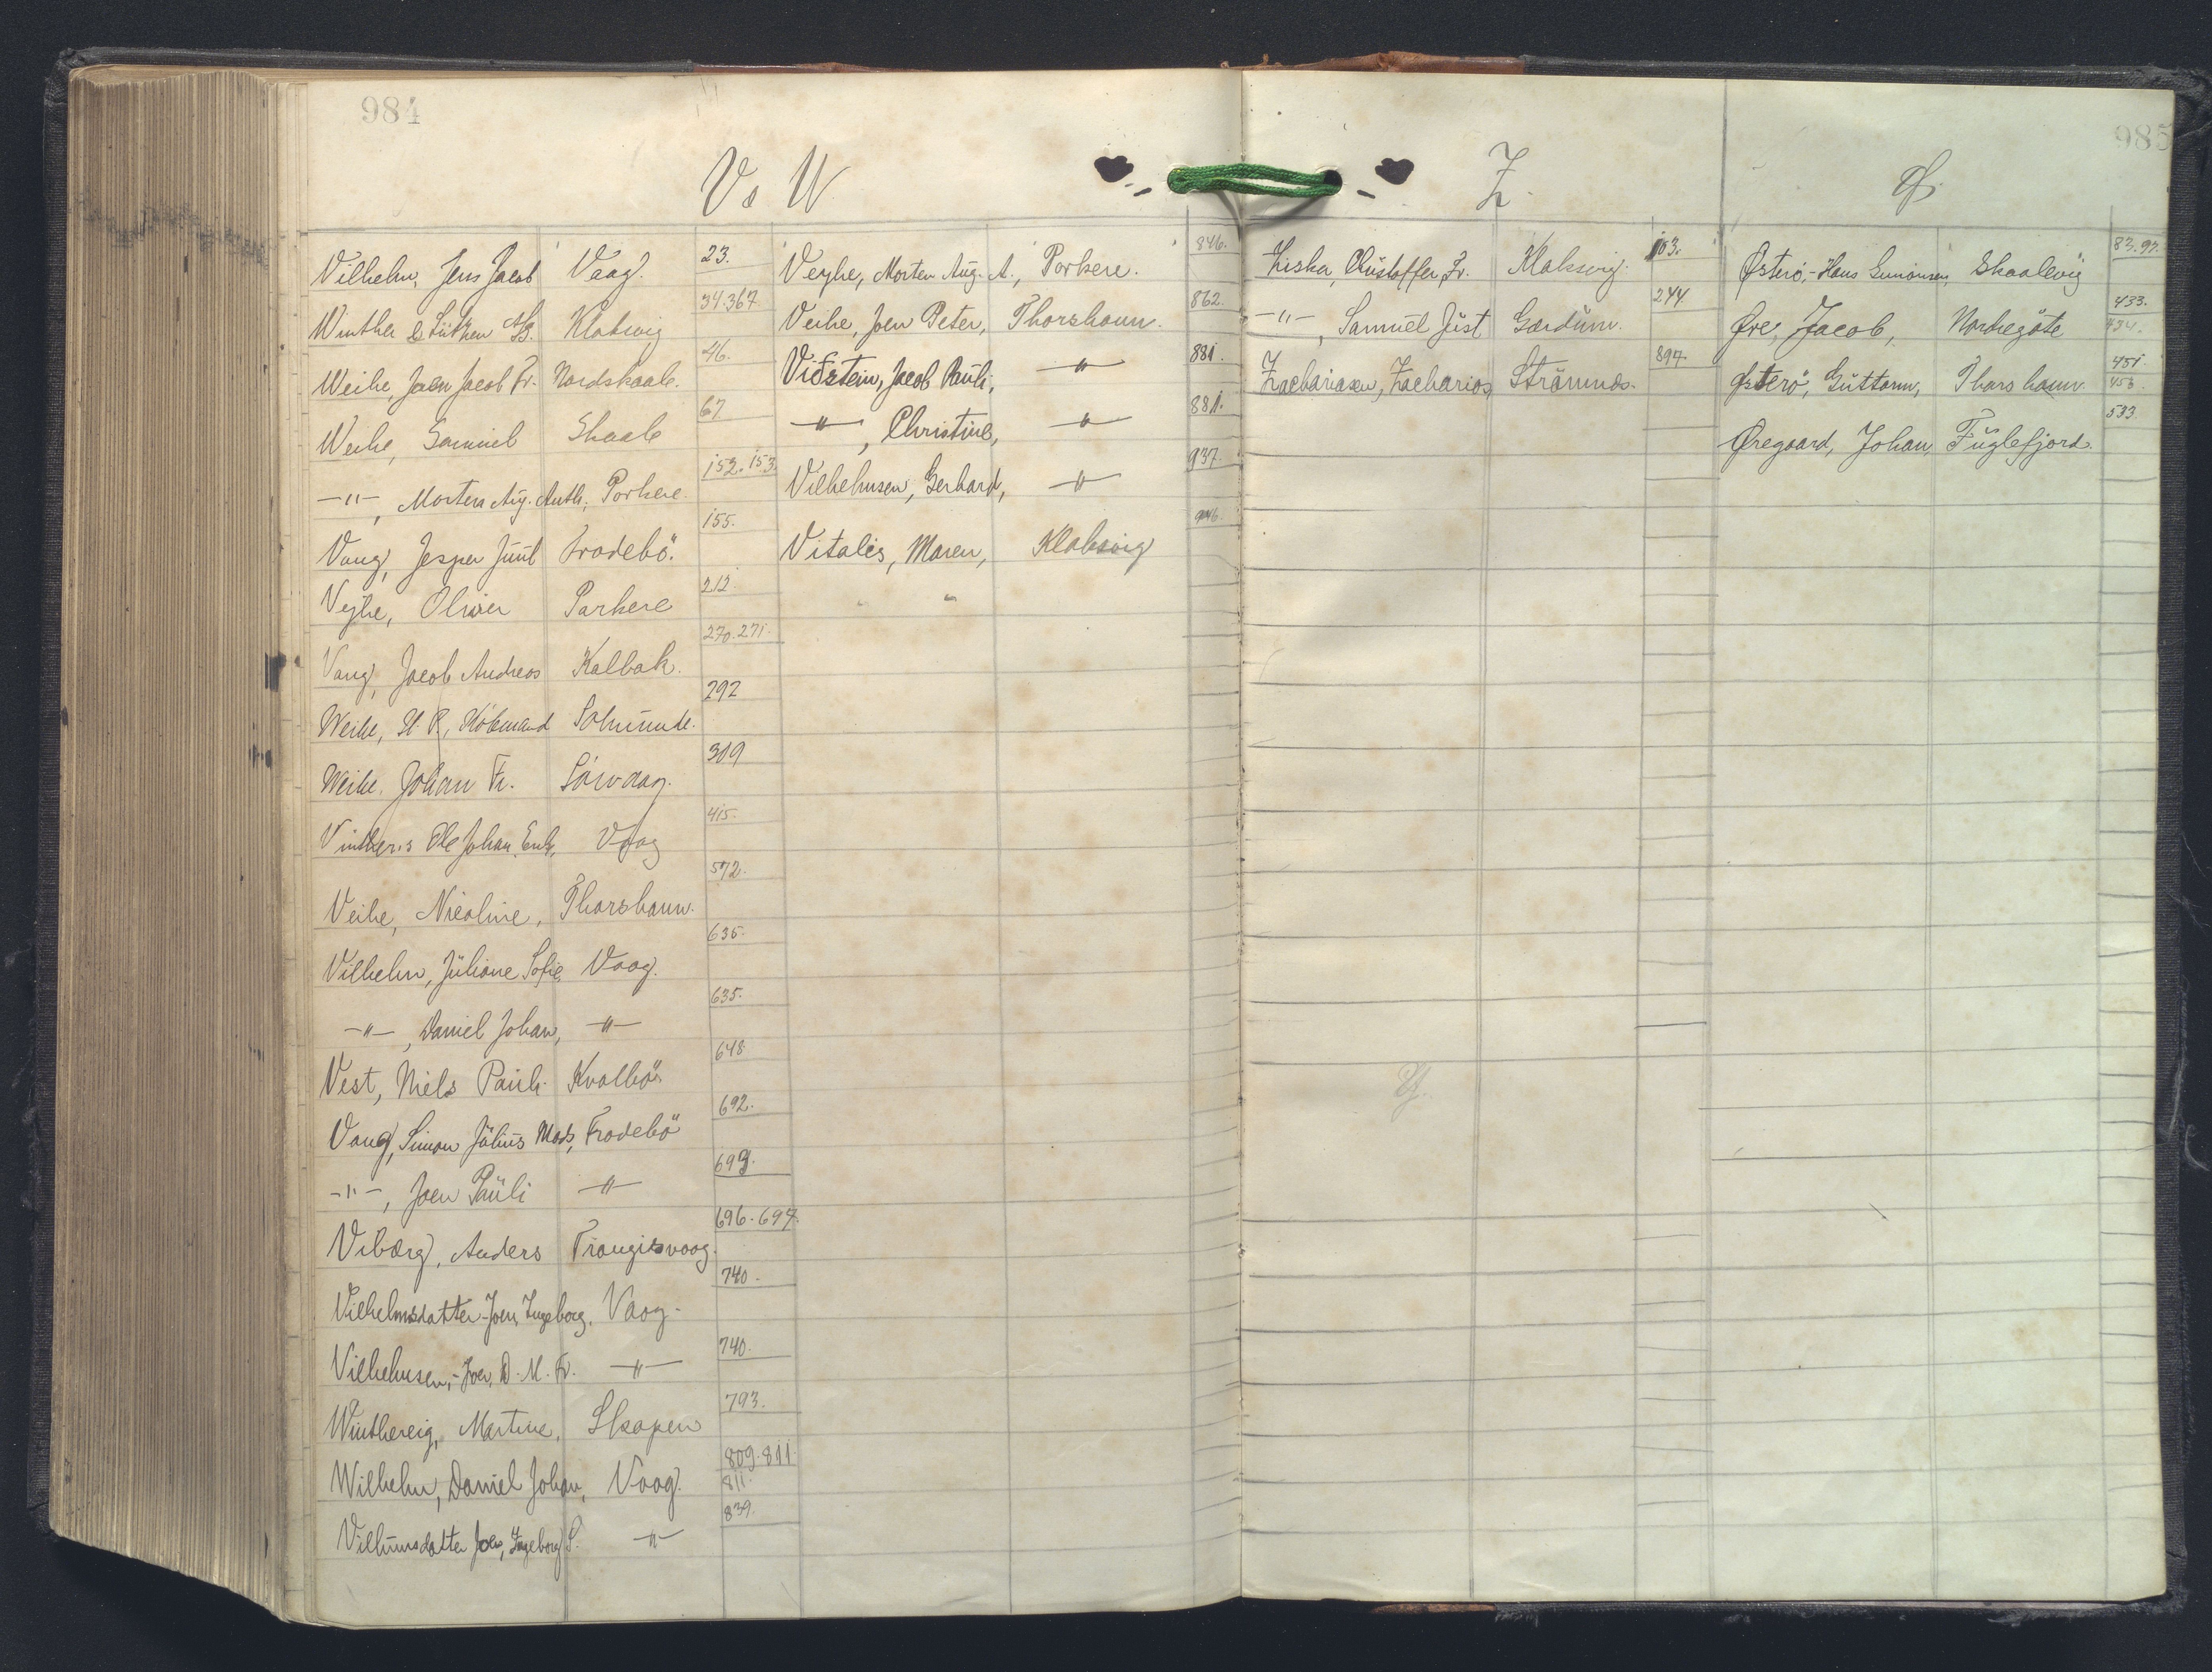 984
V & W
Vilhelm, Jens Jacob Vaag. 23.
Winther & Lütken A/S. Klaksvig 34.367
Weihe, Joen Jacob Fr. Nordskaale. 46.
Weihe, Samuel Skaale 67
-"-, Morten Aug. Anth., Porkere. 152.153.
Vang, Jesper Juul Frodebö. 155.
Vejhe, Oliver Porkere 212.
Vang, Jacob Andreas Kalbak. 270.271.
Weihe, H P., Köbmand Solmunde. 292
Weihe. Johan Fr. Sörvaag. 309
Vinther's Ole Johan, Enke, Vaag 415.
Veihe, Nicoline, Thorshavn. 572.
Vilhelm, Juliane Sofie Vaag. 635.
-"-, Daniel Johan, -"- 635.
Vest, Niels Pauli Kvalbö 648
Vang, Simon Julius Mads, Frodebö 692.
-"-, Joen Pauli -"- 693.
Viberg, Anders Trangisvaag. 696.697.
Vilhelmsdatter-Joen, Ingeborg, Vaag- 740.
Vilhelmsen,-Joen, D. M. Fr. -"- 740.
Winthereig, Martine, Skapen 793.
Wilhelm, Daniel Johan, Vaag. 809.811 811.
Vilhumsdatter Joen, Ingeborg S. -"- 839.
Veyhe, Morten Aug. A., Porkere. 846.
Veihe, Joen Peter, Thorshavn. 862.
Viðstein, Jacob Pauli, -"- 881.
-"-, Christine, -"- 881.
Vilhelmsen, Gerhard, -"- 937.
Vitalis, Maren, Klaksvig 946.
985
Z.
Ziska, Christoffer Fr. Klaksvig. 103.
-"-, Samuel Just Gærdum. 244.
Zachariasen, Zacharias, Strømnæs. 897.
Ø.
Østerö,-Hans Simonsen, Skaalevig 83.97.
Øre, Jacob, Nordregöte 433. 434.
Østerö, Guttorm, Thorshavn. 451. 453.
Øregaard, Johan, Fuglefjord. 533.